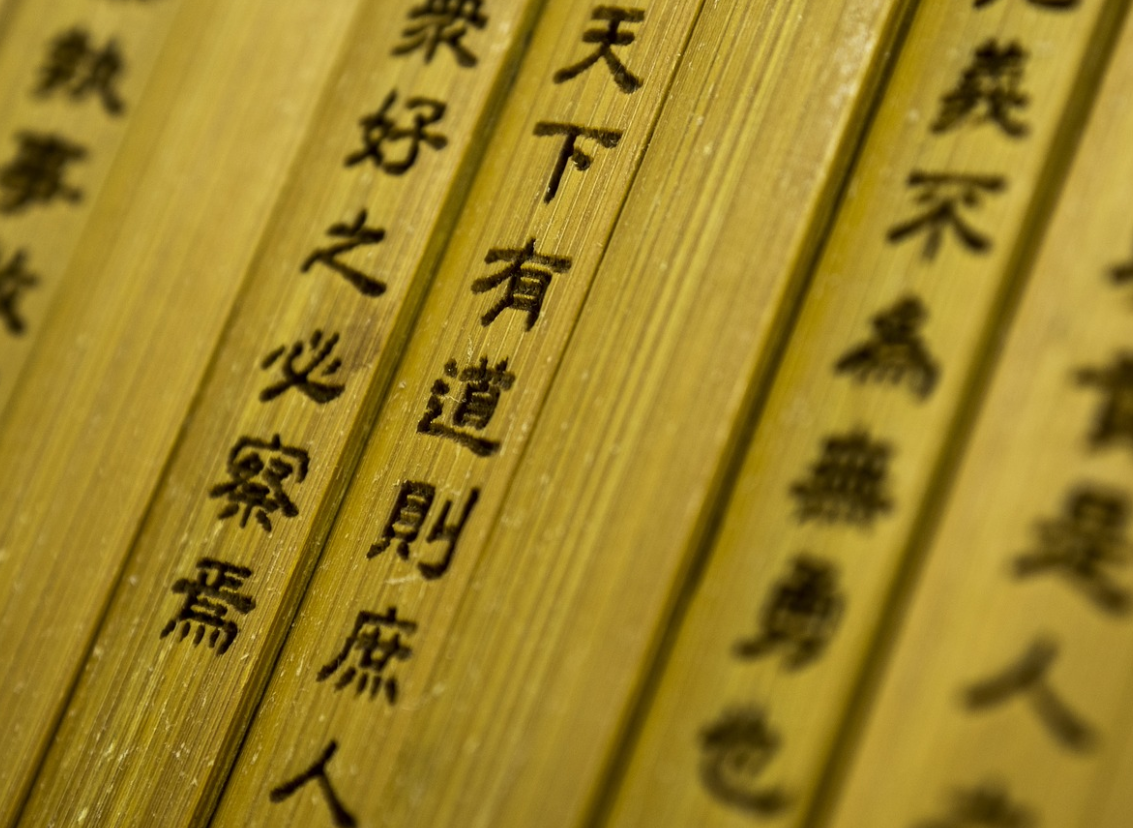 是人
義不為無勇也
天下有道則庶人
衆好之必察焉
執事